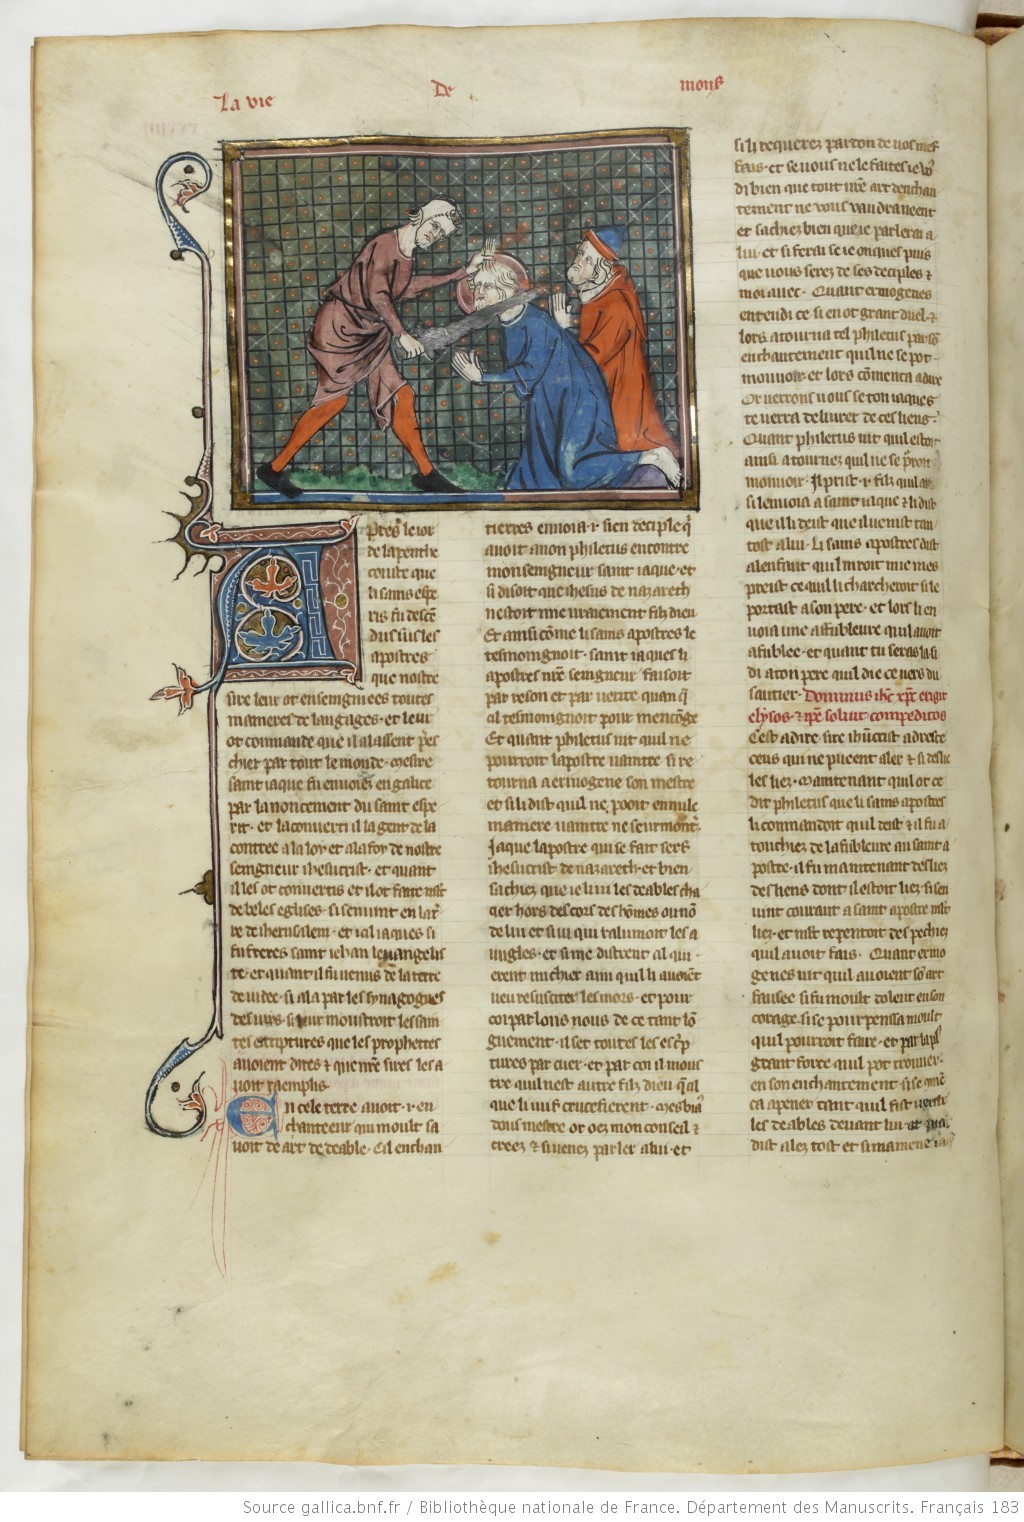 La vie
De
mons
Apres le ior
de la penthe
couste que
li sains espe
ris fu descē
dus sus les
apostres
que nostre
sire leur ot enseigniees toutes
manieres de langages · et leur
ot commande que il alassent p̄es
chier par tout le monde · mesire
saint iaque fu enuoiez en galice
par lanoncement du saint espe
rit · et la conuerti il la gent de la
contree a la loy et a la foy de nostre
seigneur ihesucrist · et quant
il les ot conuertis et il ot faite mlt
de beles eglises · si sen uint en la tr̄
re de iherusalem · et icil iaques si
fu freres saint iehan leuangelis
te · et quant il fu uenus de la terre
de iudee · si ala par les synagogues
des iuis · si leur moustroit les sain
tes escriptures que les prophettes
auoient dites & que nr̄e sires les a
uoit raemplis ·
En cele terre auoit · i · en
chanteeur qui moult sa
uoit de art de deable · Cil enchan
tierres enuoia · i · sien deciple q̄
auoit a non philetus encontre
monseigneur saint iaque · et
si disoit que ihesus de nazareth
nestoit mie uraiement filz dieu
Et ainsi cōme li sains apostres le
tesmoignoit · saint iaques li
apostres nr̄e seigneur faisoit
par reson et par uerite quan q̄
cil tesmoignoit pour mencōge
Et quant philetus uit quil ne
pourroit lapostre uaintre si re
tourna a ermogene son mestre
et si li dist quil ne pooit en nule
maniere uaintre ne seurmont̄
Jaque lapostre qui se fait serf
ihesucrist de nazareth · et bien
sachiez que ie li ui les deables cha
cier hors des cors des hōmes ou nō
de lui et si ui qui ralumoit les a
uugles · et si me distrent cil qui
erent mi chier ami quil li auoiēt
ueu resusciter les mors · et pour
coi parlons nous de ce tant lō
guement · il set toutes les esc̄p
tures par cuer · et par coi il mous
tre quil nest autre filz dieu q̄ cil
que li iuif crucefierent · Mes biā
dous mestre or oez mon conseil &
creez & si uenez parler a lui · et
si li requerez pardon de uos mes
fais · et se uous ne le faites ie uo᷒
di bien que tout nr̄e art denchan
tement ne uous uaudra neent
et sachiez bien que ie parlerai a
lui · et si ferai se ie onques puis
que uous serez de ses deciples &
moi auec · Quant ermogenes
entendi ce si en ot grant duel · &
lors atourna tel philetus par sō
enchantement quil ne se pot
mouuoir · et lors cōmenca a dire
Or uerrons nous se ton iaques
te uerra deliurer de ces liens ·
Quant philetus uit quil estoit
ainsi atournez quil ne se p̄roit
mouuoir · Il prist · i · filz quil
si lenuoia a saint iaque & li dist
que il li deist que il uenist tan
tost a lui · Li sains apostres dist
a lenfant
preist ce quil li chargeroit si le
portast a son pere · et lors li en
uoia une affubleure quil auoit
afublee · et quant tu seras la si
di a ton pere quil die ce uers du
sautier · Dominus ihc xpc erigit
elysos · & ip̄e soluit compeditos
Cest a dire · sire ihūcrist adresce
ceus qui ne pueent aler & si deslie
les liez · Maintenant quil ot ce
dit philetus que li sains apostres
li commandoit quil deist & il fu a
touchiez de la fubleure au saint a
postre · il fu maintenant desliez
des liens dont il estoit liez · si sen
uint courant a saint apostre mlt
liez · et mlt repentoit des pechiez
quil auoit fais · Quant ermo
genes uit quil auoient sō art
fausee si fu moult dolent en son
corage · si se pourpenssa moult
quil pourroit faire · et par la pl᷒
grant force quil pot trouuer
en son enchantement · si se
ca apener tant quil fist uenir
les deables deuant lui
dist alez tost et si mamene
Source gallica.bnf.fr / Bibliothèque nationale de France. Département des Manuscrits. Français 183